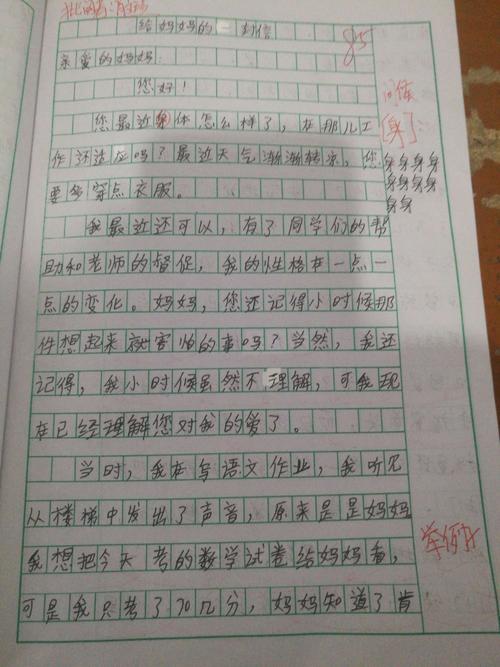 给妈妈的一封信
85
亲爱的妈妈:
您好!
问候
您最近身体怎么样了,在那儿工
[身]:
作还适应吗?最近天气渐渐转凉,您
身身身身
要多穿点衣服。
身身身身
身身
我最近还可以,有了同学们的帮
助和老师的督促,我的性格在一点一
点的变化。妈妈,您还记得小时候那
件想起来就害怕的事吗?当然,我还
记得,我小时候虽然不理解,可我现
在已经理解您对我的爱了。
当时,我在写语文作业,我听见
从楼梯中发出了声音,原来是是妈妈,
我想把今天考的数学试卷给妈妈看,
举例子
可是我只考了70几分,妈妈知道了肯